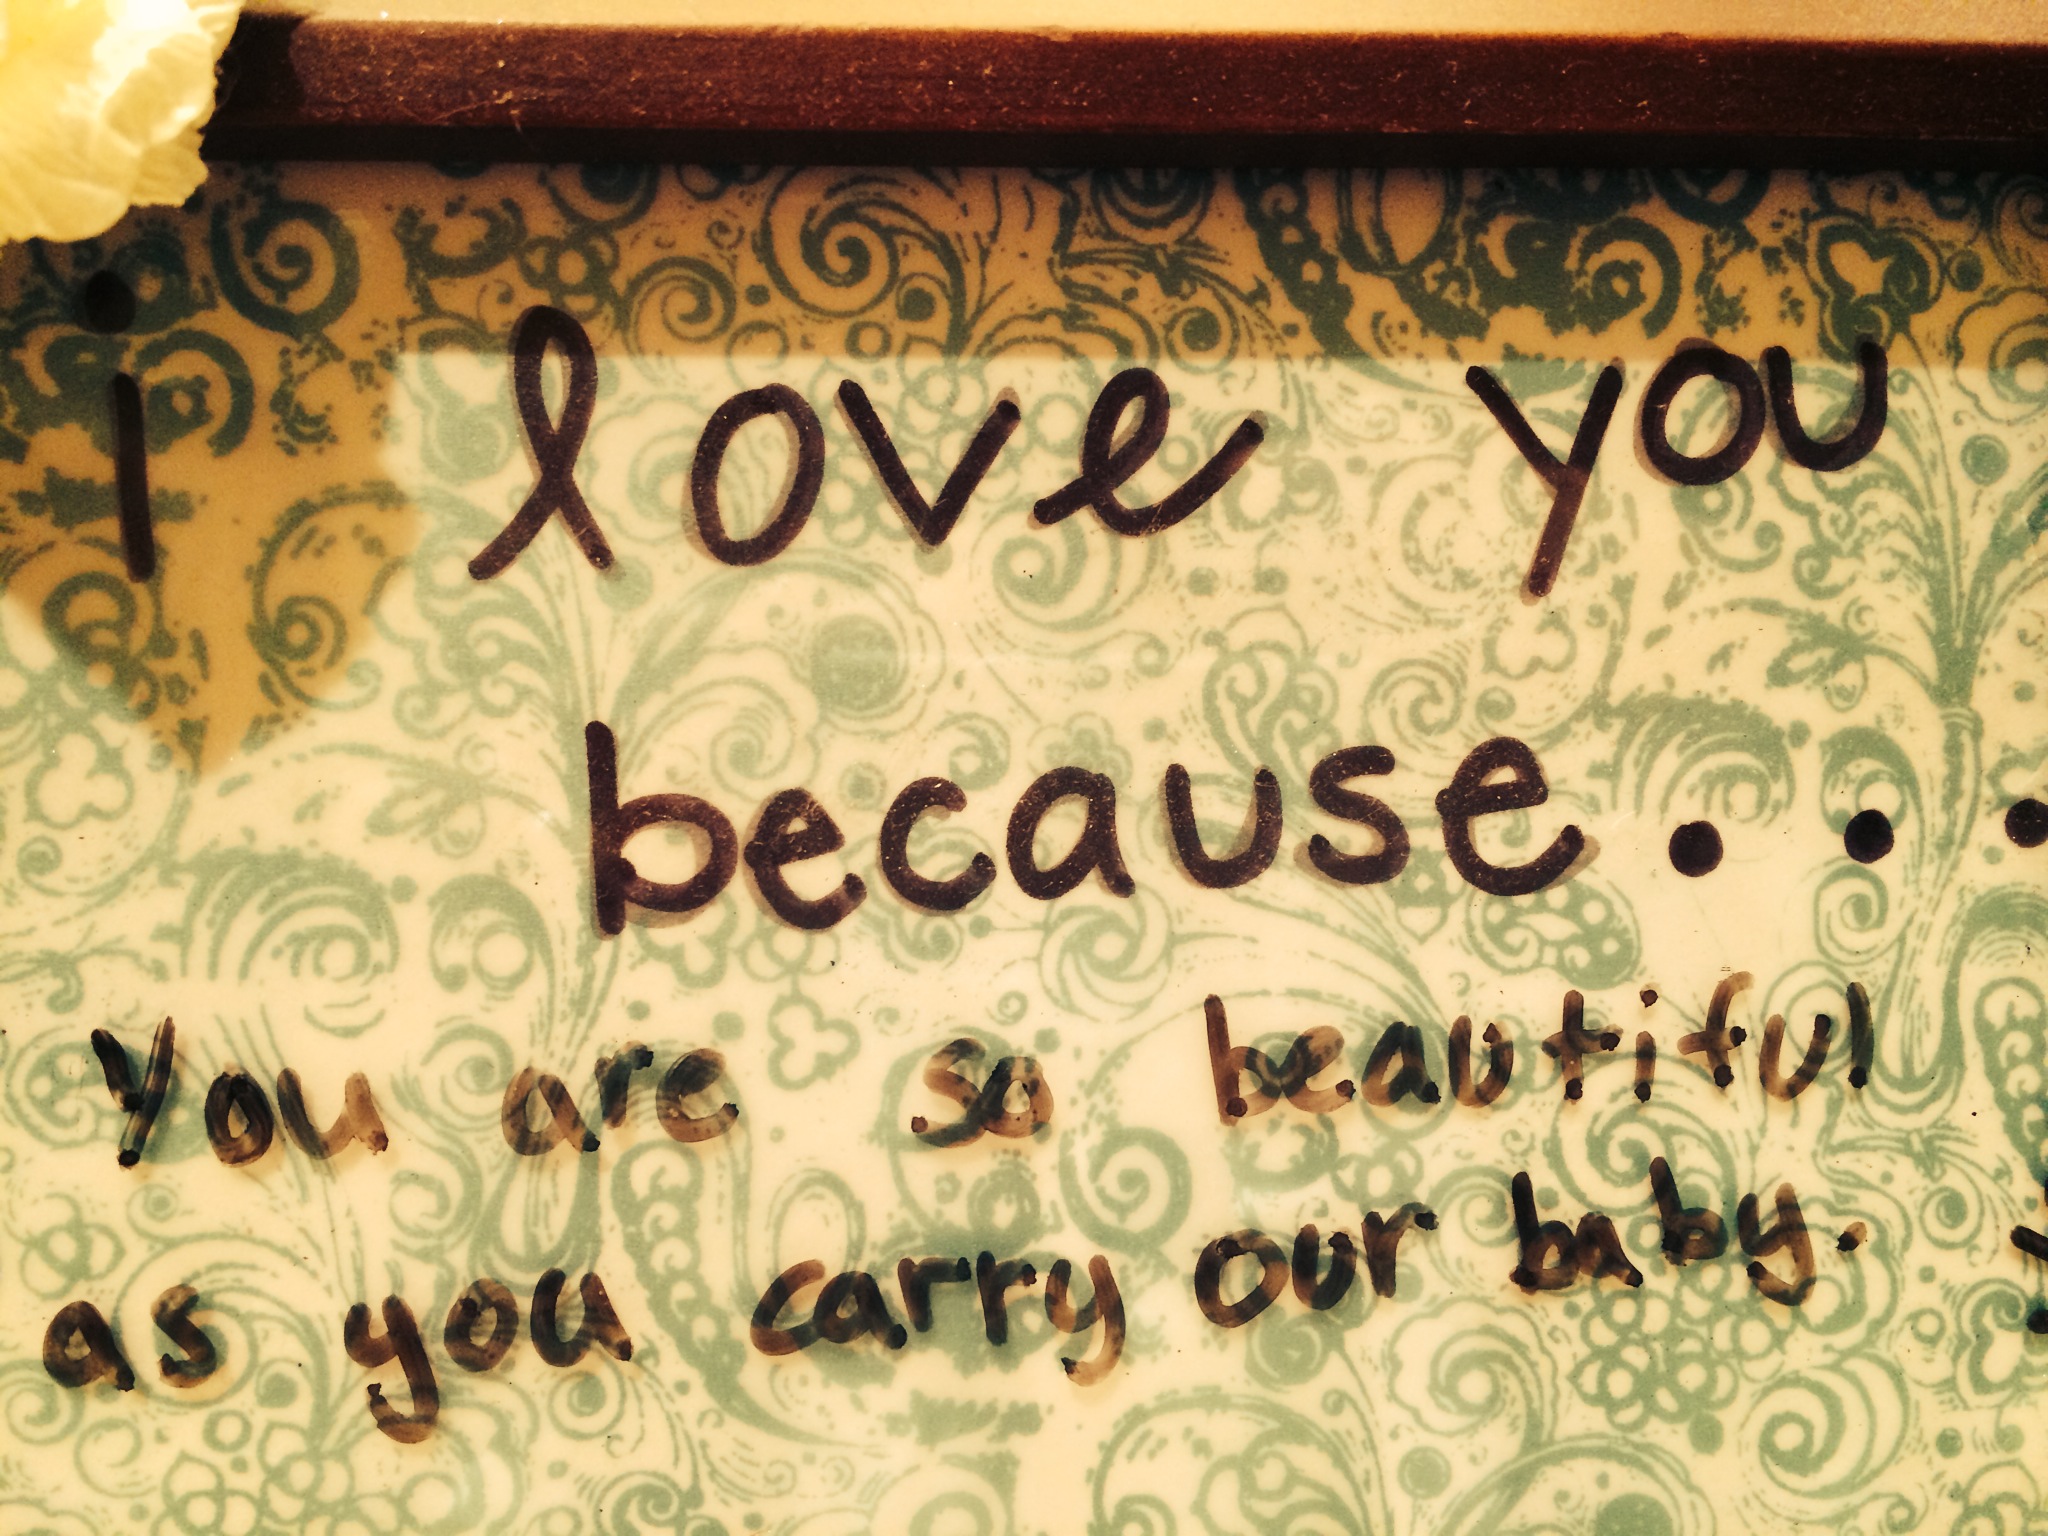 i love you
because...
You are so beautiful
as you carry our baby.